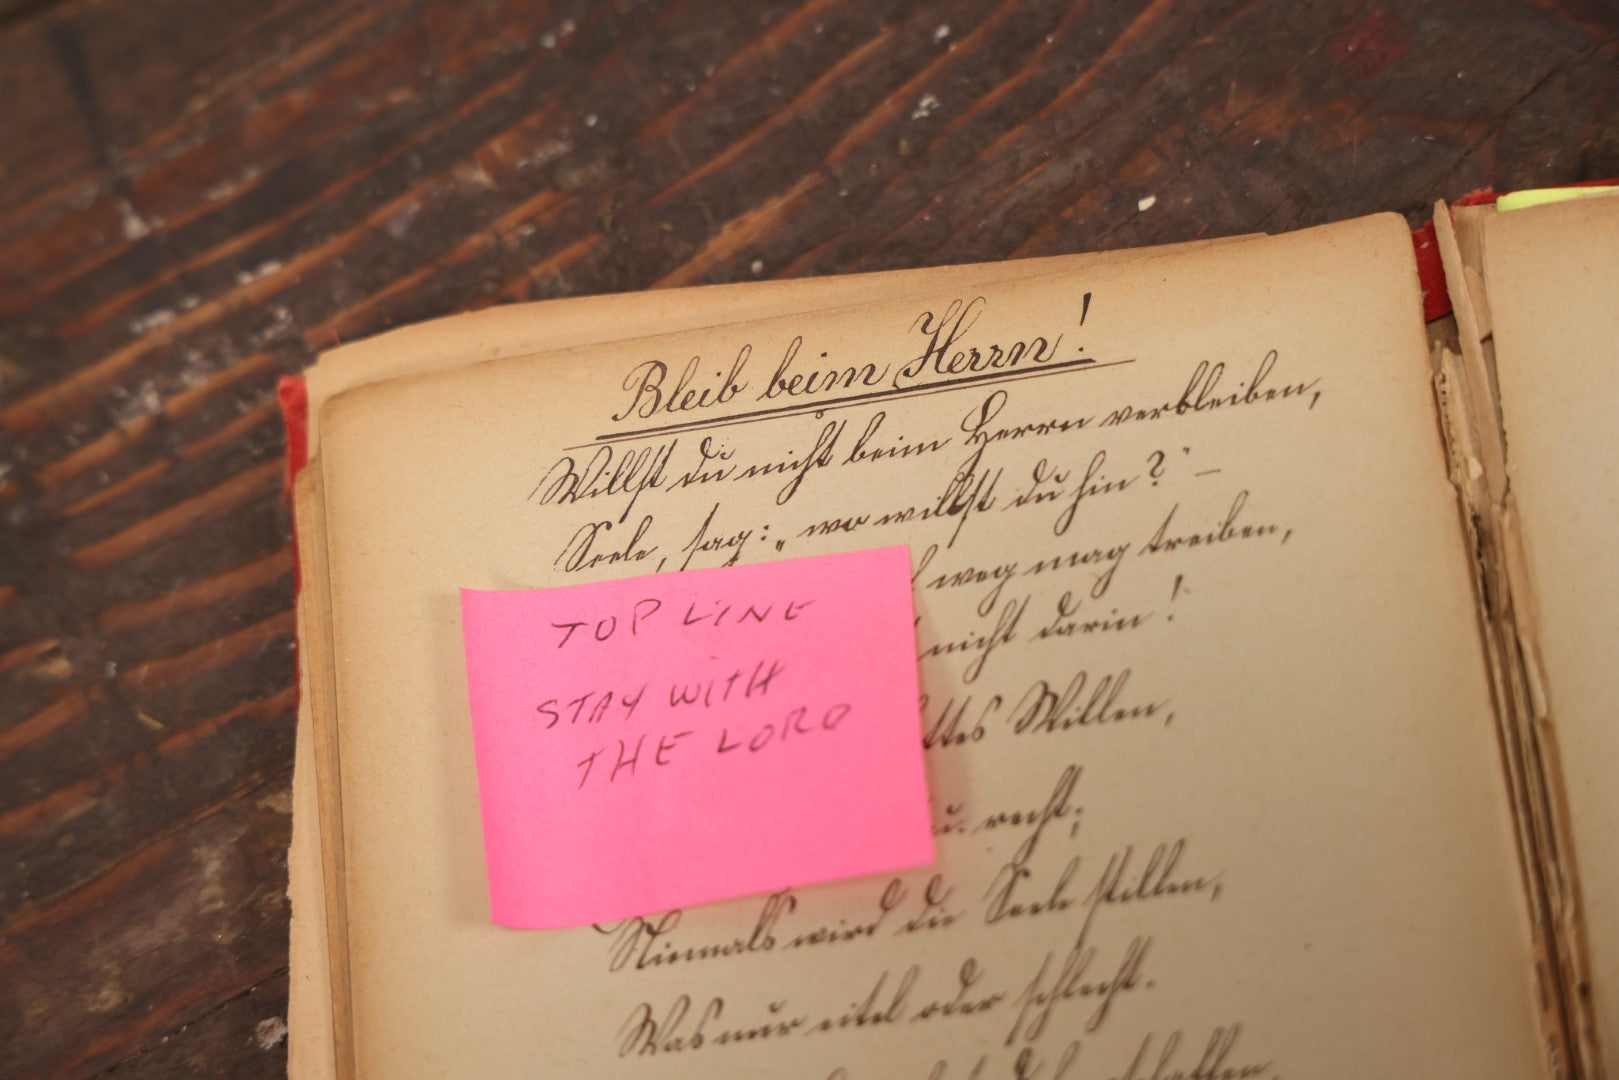 Bleib beim Herrn!
Willst du nicht beim Herrn verbleiben,
Seele, sag: „wo willst du hin?" –
weg mag treiben,
nicht darin!
Willen,
u. recht;
Niemals wird die Seele stillen,
Was nur eitel oder schlecht.
TOP LINE
STAY WITH
THE LORD